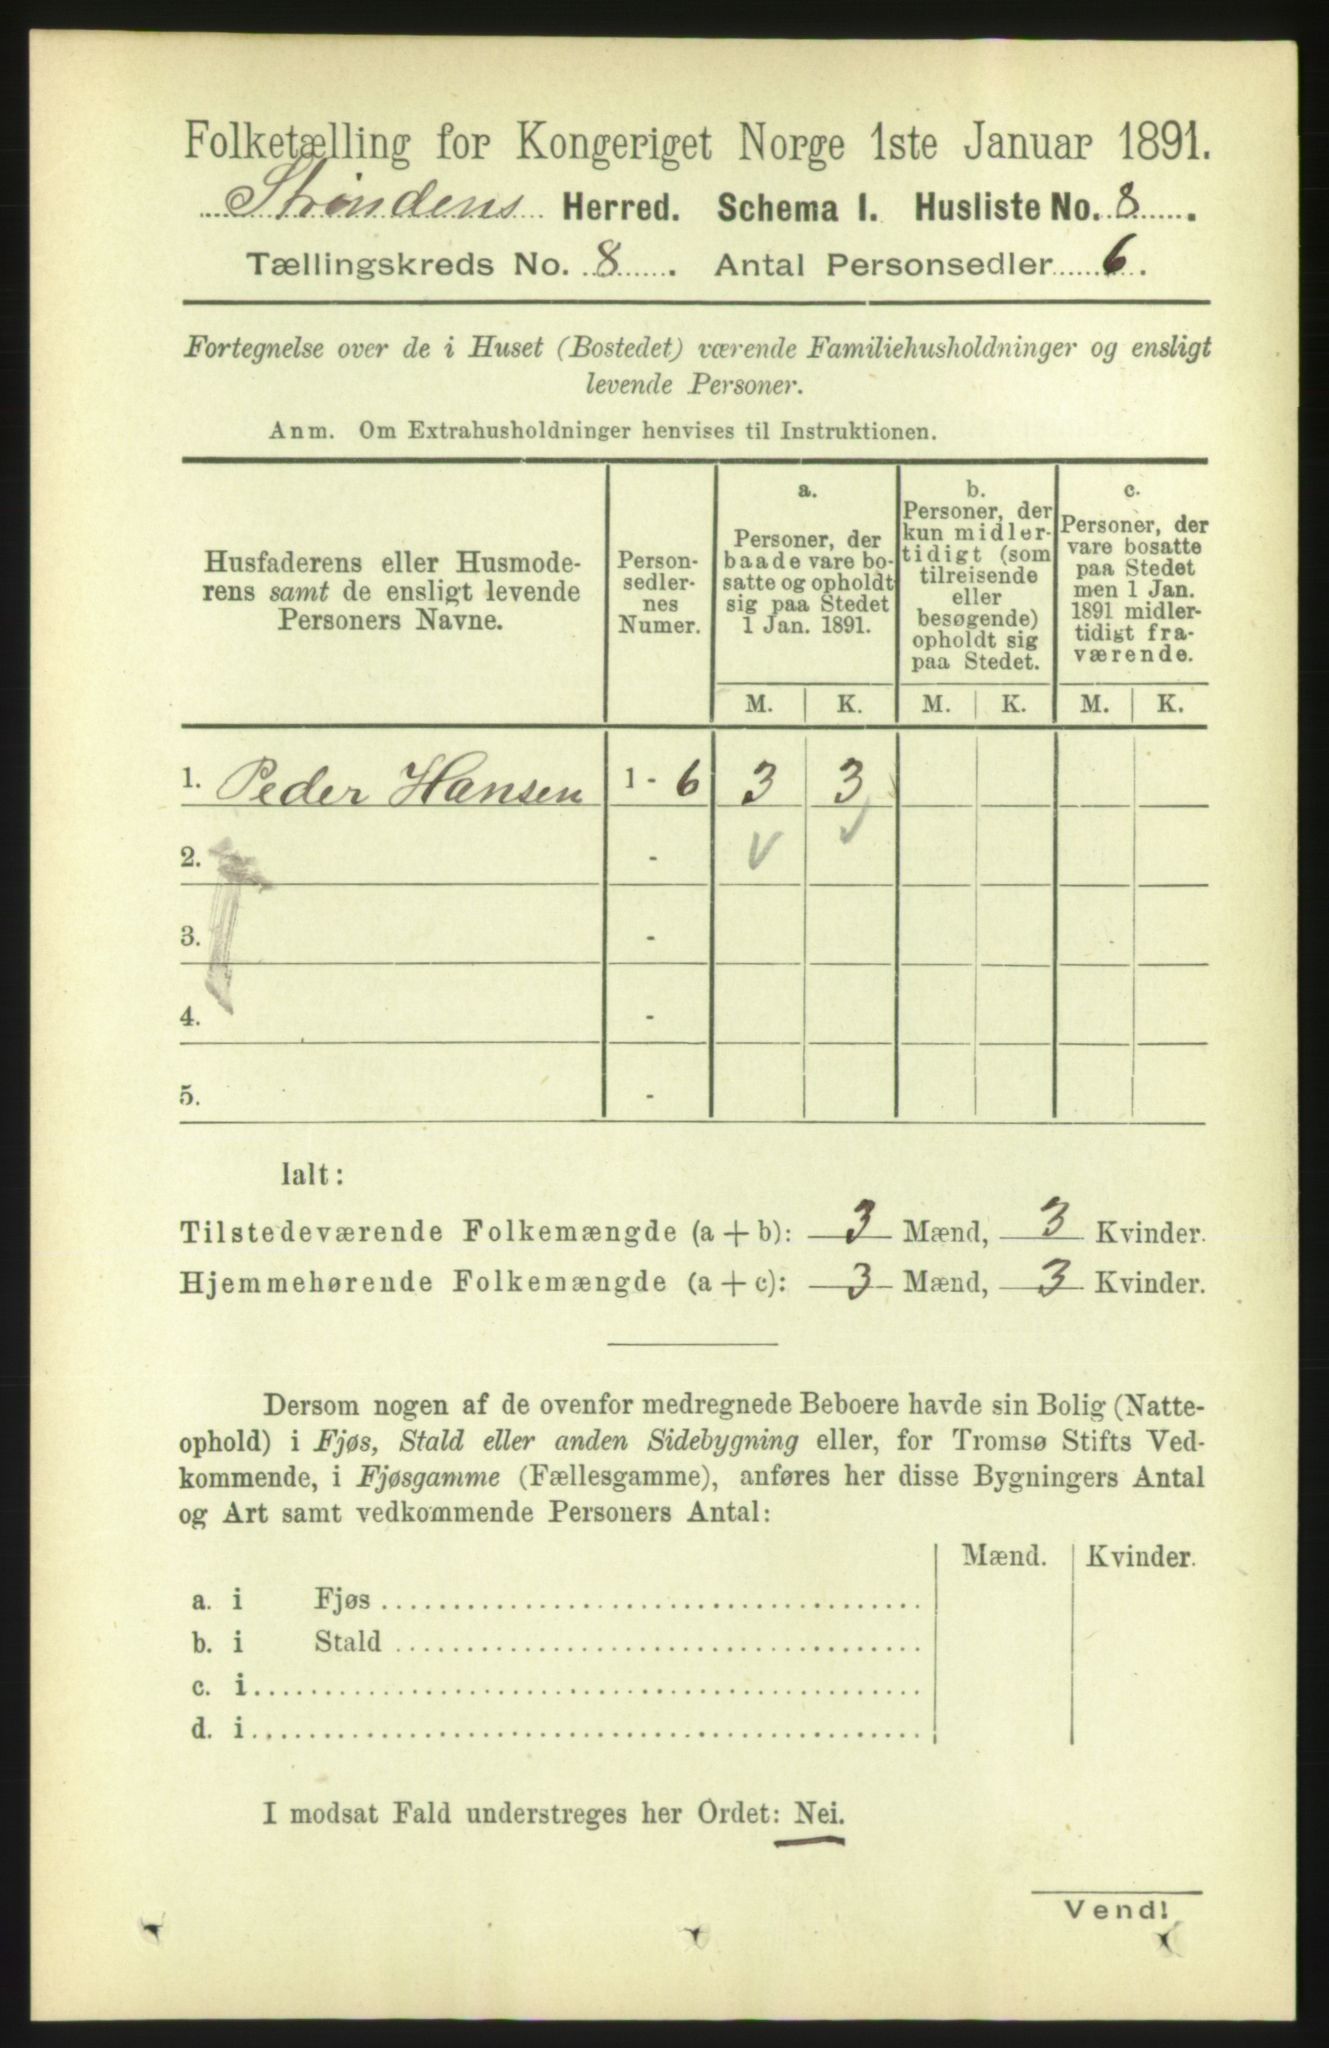 Folketælling for Kongeriget Norge 1ste Januar 1891.
Strindens Herred. Schema I. Husliste No. 8.
Tællingskreds No. 8. Antal Personsedler 6.
Fortegnelse over de i Huset (Bostedet) værende Familiehusholdninger og ensligt
levende Personer.
Anm. Om Extrahusholdninger henvises til Instruktionen.
Husfaderens eller Husmode-
rens samt de ensligt levende
Personers Navne.
Person-
sedler-
nes
Numer.
a.
Personer, der
baade vare bo-
satte og opholdt
sig paa Stedet
1 Jan. 1891.
b.
Personer, der
kun midler-
tidigt (som
tilreisende
eller
besøgende)
opholdt sig
paa Stedet.
c.
Personer, der
vare bosatte
paa Stedet
men 1 Jan.
1891 midler-
tidigt fra-
værende.
M. K. M. K. M. K.
1. Peder Hansen 1 - 6 3 3
2. -
3. -
4. -
5. -
Ialt:
Tilstedeværende Folkemængde (a + b): 3 Mænd, 3 Kvinder.
Hjemmehørende Folkemængde (a + c): 3 Mænd, 3 Kvinder.
Dersom nogen af de ovenfor medregnede Beboere havde sin Bolig (Natte-
ophold) i Fjøs, Stald eller anden Sidebygning eller, for Tromsø Stifts Ved-
kommende, i Fjøsgamme (Fællesgamme), anføres her disse Bygningers Antal
og Art samt vedkommende Personers Antal:
Mænd. Kvinder.
a. i Fjøs
b. i Stald
c. i
d. i
I modsat Fald understreges her Ordet: Nei.
Vend!